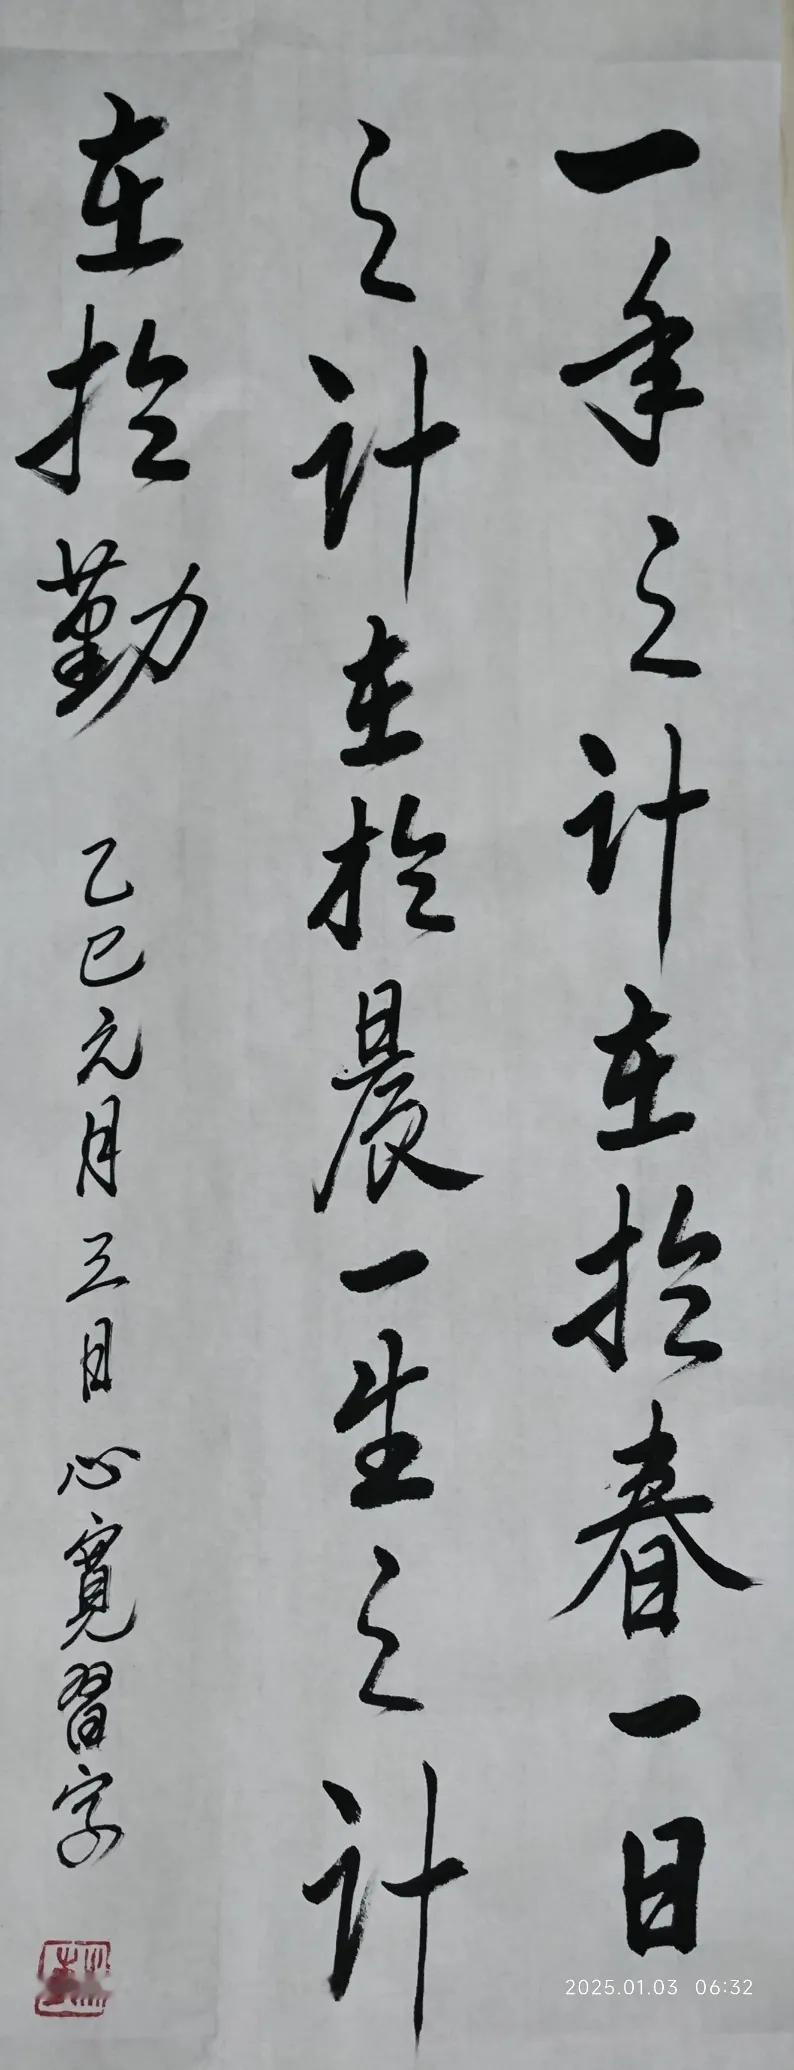 一年之計在於春一日
之計在於晨一生之計
在於勤
乙巳元月三日心寬習字
2025.01.03 06:32